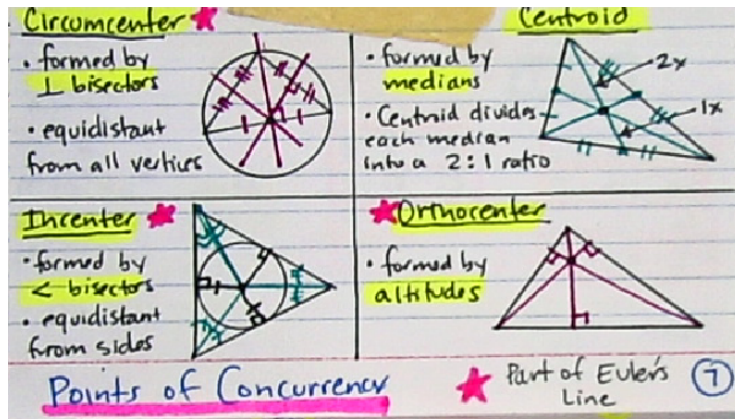 Circumcenter
• formed by
⊥ bisectors
• equidistant
from all vertices
Centroid
• formed by
medians
• Centroid divides
each median
into a 2:1 ratio
2x
1x
Incenter
• formed by
< bisectors
• equidistant
from sides
Orthocenter
• formed by
altitudes
Points of Concurrency
Part of Euler's
Line
7